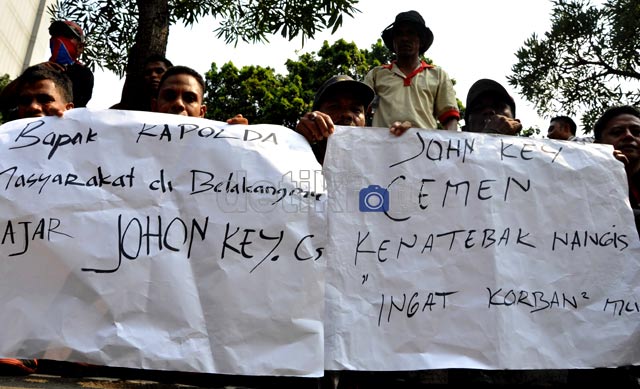 Bapak KAPOLDA
Masyarakat di Belakangmu
AJAR JOHON KEY. Cs
JOHN KEY
CEMEN
KENATEBAK NANGIS
"INGAT KORBAN²
detik